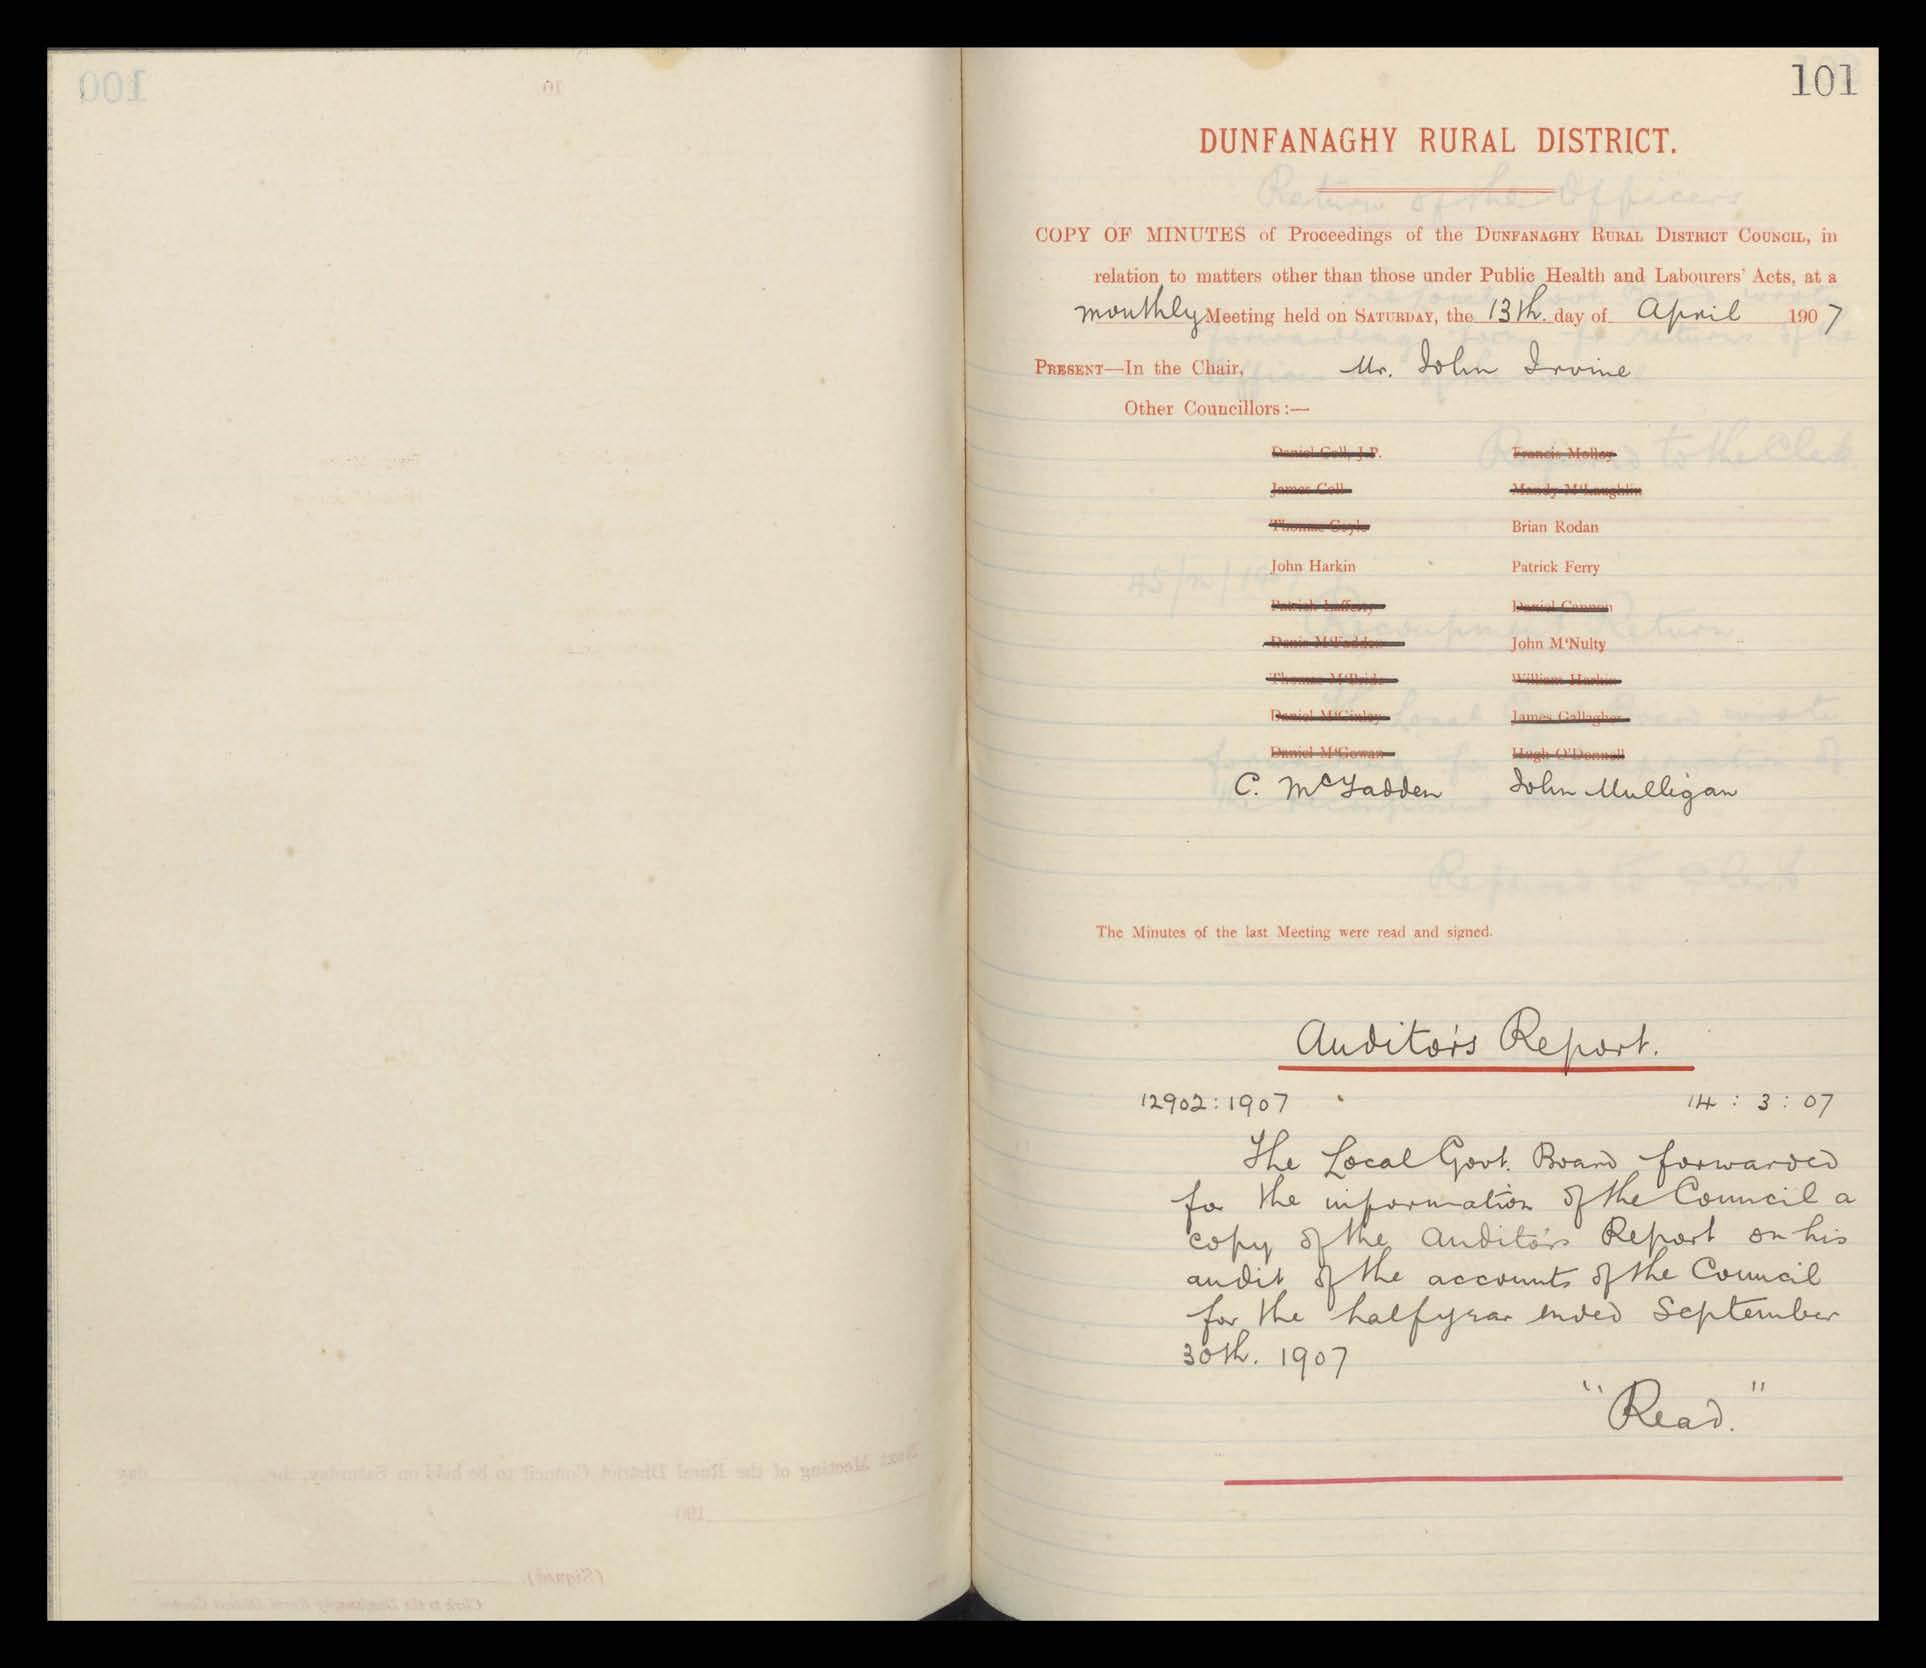 101
DUNFANAGHY RURAL DISTRICT.
COPY OF MINUTES of Proceedings of the DUNFANAGHY RURAL DISTRICT COUNCIL, in
relation to matters other than those under Public Health and Labourers' Acts, at a
monthly Meeting held on SATURDAY, the 13th. day of April 1907
PRESENT—In the Chair, Mr. John Irvine
Other Councillors:—
Daniel Coll, J.P. Francis Molloy
James Coll Mandy M'Laughlin
Thomas Coyle Brian Rodan
John Harkin Patrick Ferry
Patrick Lafferty Daniel Cannon
Denis M'Fadden John M'Nulty
Thomas M'Bride William Harkin
Daniel M'Ginley James Gallagher
Daniel M'Gowan Hugh O'Donnell
C. McFadden John Mulligan
The Minutes of the last Meeting were read and signed.
Auditor's Report.
12902:1907 14 : 3 : 07
The Local Govt. Board forwarded
for the information of the Council a
copy of the Auditor's Report on his
audit of the accounts of the Council
for the halfyear ended September
30th. 1907
"Read."